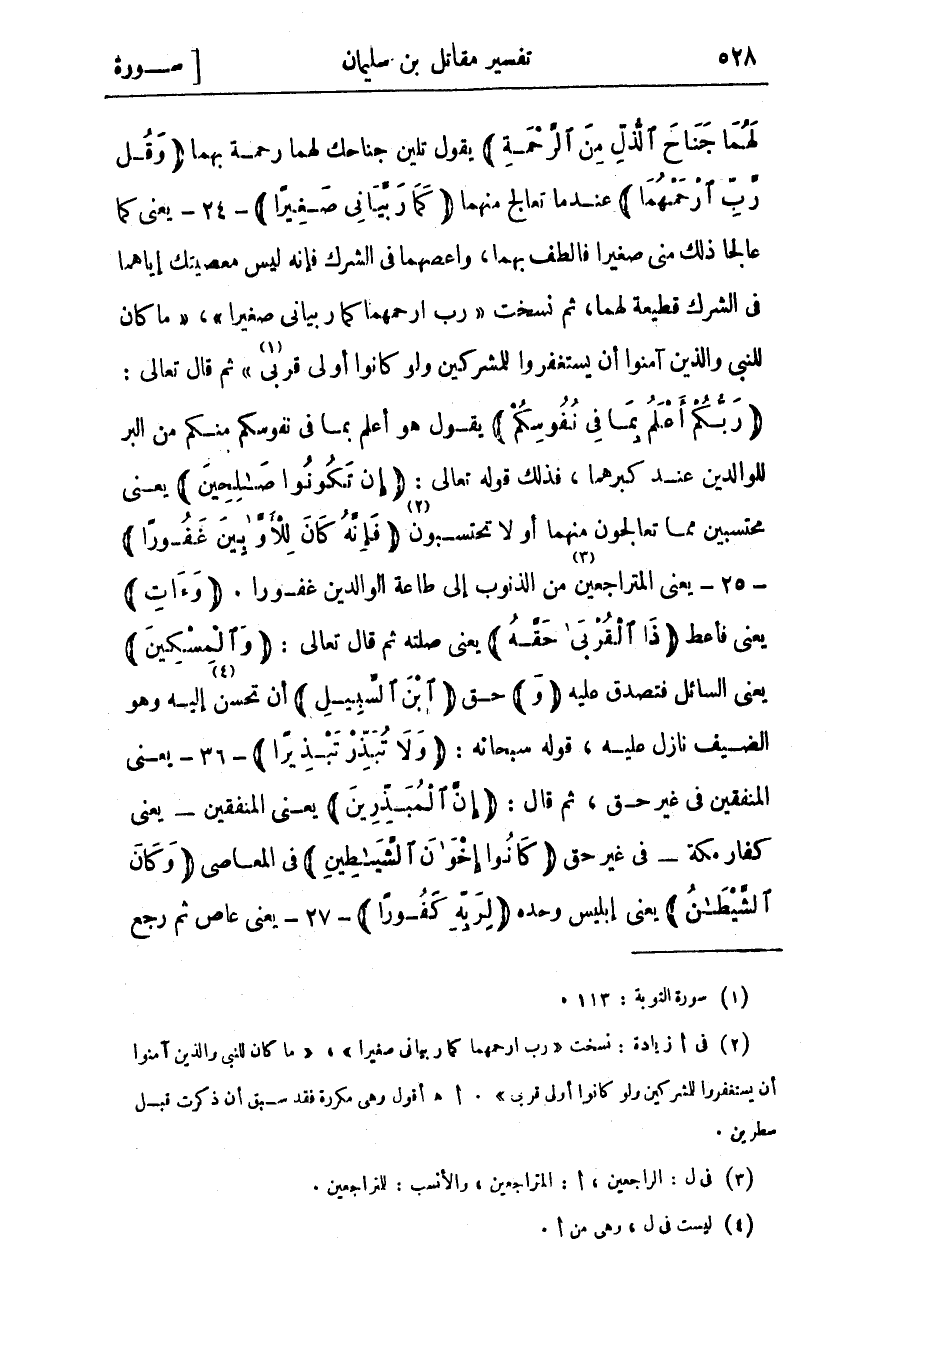 ٥٢٨ تفسير مقاتل بن سليمان [ ســورة
لَهُمَا جَنَاحَ ٱلذُّلِّ مِنَ ٱلرَّحْمَـةِ ﴾ يقول تلين جناحك لهما رحمـة بهما ﴿ وَقُــل
رَّبِّ ٱرْحَمْهُمَا ﴾ عنــدما تعالج منهما ﴿ كَمَا رَبَّيَانِى صَـغِيرًا ﴾ - ٢٤ - يعنى كما
عالجا ذلك منى صغيرا فالطف بهما، واعصهما فى الشرك فإنه ليس معصيتك إياهما
فى الشرك قطيعة لهما، ثم نسخت « رب ارحمهما كما ربيانى صغيرا » ، « ما كان
للنبى والذين آمنوا أن يستغفروا للمشركين ولو كانوا أولى قربى (١) » ثم قال تعالى :
﴿ رَبُّكُمْ أَعْلَمُ بِمَـا فِى نُفُوسِكُمْ ﴾ يقــول هو أعلم بمـا فى نفوسكم منـكم من البر
للوالدين عنــد كبرهما ، فذلك قوله تعالى : ﴿ إِن تَكُونُوا صَـٰلِحِينَ ﴾ يعــنى
محتسبين ممـا تعالجون منهما أو لا تحتســبون (٢) ﴿ فَإِنَّهُ كَانَ لِلْأَوَّٰبِينَ غَفُـورًا ﴾
- ٢٥ - يعنى المتراجعين (٣) من الذنوب إلى طاعة الوالدين غفـورا . ﴿ وَءَاتِ ﴾
يعنى فأعط ﴿ ذَا ٱلْقُرْبَىٰ حَقَّـهُ ﴾ يعنى صلته ثم قال تعالى : ﴿ وَٱلْمِسْكِينَ ﴾
يعنى السائل فتصدق عليه ﴿ وَ ﴾ حـق ﴿ ٱبْنَ ٱلسَّبِيـلِ ﴾ أن تحسن (٤) إليــه وهو
الضــيف نازل عليــه ، قوله سبحانه : ﴿ وَلَا تُبَذِّرْ تَبْـذِيرًا ﴾ - ٣٦ - يعــنى
المنفقين فى غير حـق ، ثم قال : ﴿ إِنَّ ٱلْمُبَـذِّرِينَ ﴾ يعـنى المنفقين ــ يعنى
كفار مكة ــ فى غير حق ﴿ كَانُوا إِخْوَٰنَ ٱلشَّيَـٰطِينِ ﴾ فى المعـاصى ﴿ وَكَانَ
ٱلشَّيْطَـٰنُ ﴾ يعنى إبليس وحده ﴿ لِرَبِّهِ كَفُـورًا ﴾ - ٢٧ - يعنى عاص ثم رجع
(١) سورة التوبة : ١١٣ .
(٢) فى أ زيادة : نسخت « رب ارحمهما كما ربيانى صغيرا » ، « ما كان للنبى والذين آمنوا
أن يستغفروا للمشركين ولو كانوا أولى قربى » . أ ه أقول وهى مكررة فقد ســبق أن ذكرت قبــل
سطرين .
(٣) فى ل : الراجعين ، أ : المتراجعين ، والأنسب : للتراجعين .
(٤) ليست فى ل ، وهى من أ .